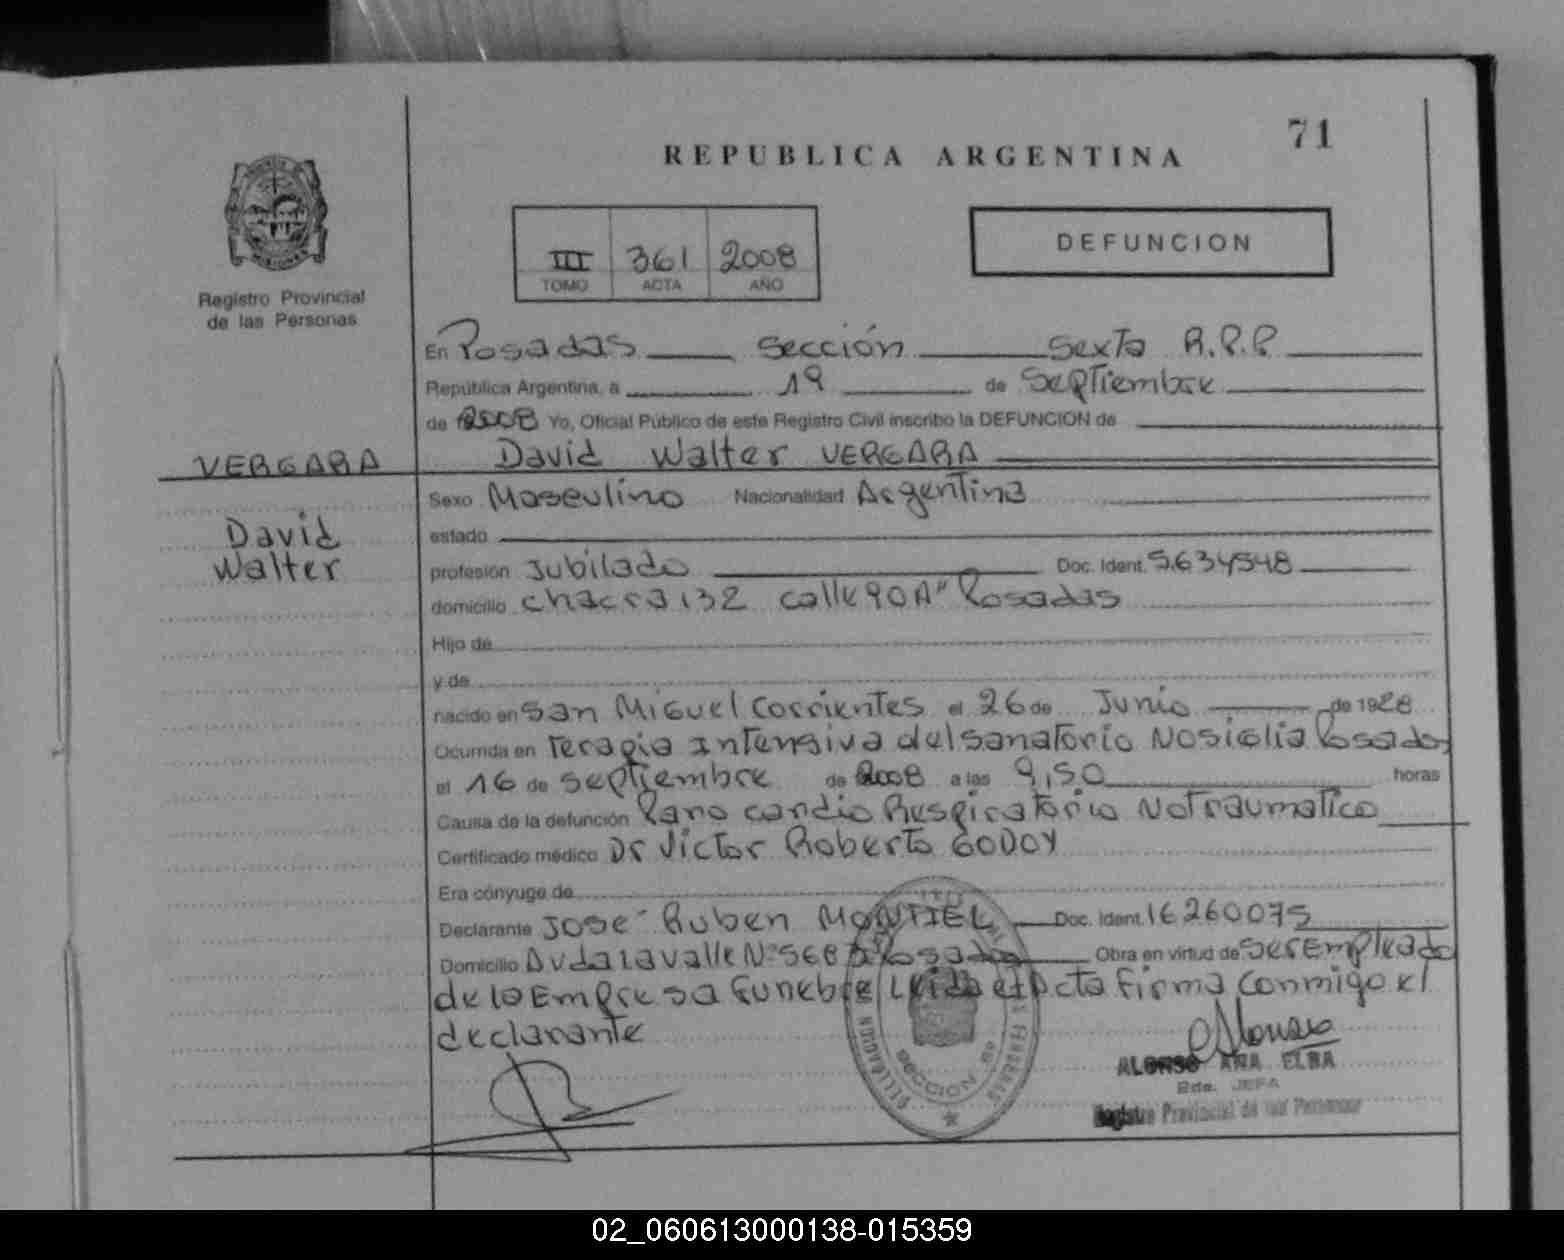 71
REPUBLICA ARGENTINA
III 361 2008
TOMO ACTA AÑO
DEFUNCION
Registro Provincial
de las Personas
En Posadas sección sexta R.P.P.
República Argentina, a 19 de Septiembre
de 2008 Yo, Oficial Público de este Registro Civil inscribo la DEFUNCION de
VERGARA David Walter VERGARA
Sexo Masculino Nacionalidad Argentina
David
Walter
estado
profesión Jubilado Doc. Ident. 5.634548
domicilio chacra 132 calle 90 A" Posadas
Hijo de
y de
nacido en San Miguel Corrientes el 26 de Junio de 1928
Ocurrida en Terapia Intensiva del sanatorio Nosiglia Posadas
el 16 de septiembre de 2008 a las 9,50 horas
Causa de la defunción Paro cardio Respiratorio No traumatico
Certificado médico Dr Victor Roberto GODOY
Era cónyuge de
Declarante José Ruben MONTIEL Doc. Ident. 16260075
Domicilio Avda Lavalle Nº Posadas Obra en virtud de ser Empleado
de la Empresa funebre Leida el Acta firma conmigo el
declarante
SECCION 6º
ALONSO ANA ELBA
JEFA
Registro Provincial de las Personas
02_060613000138-015359